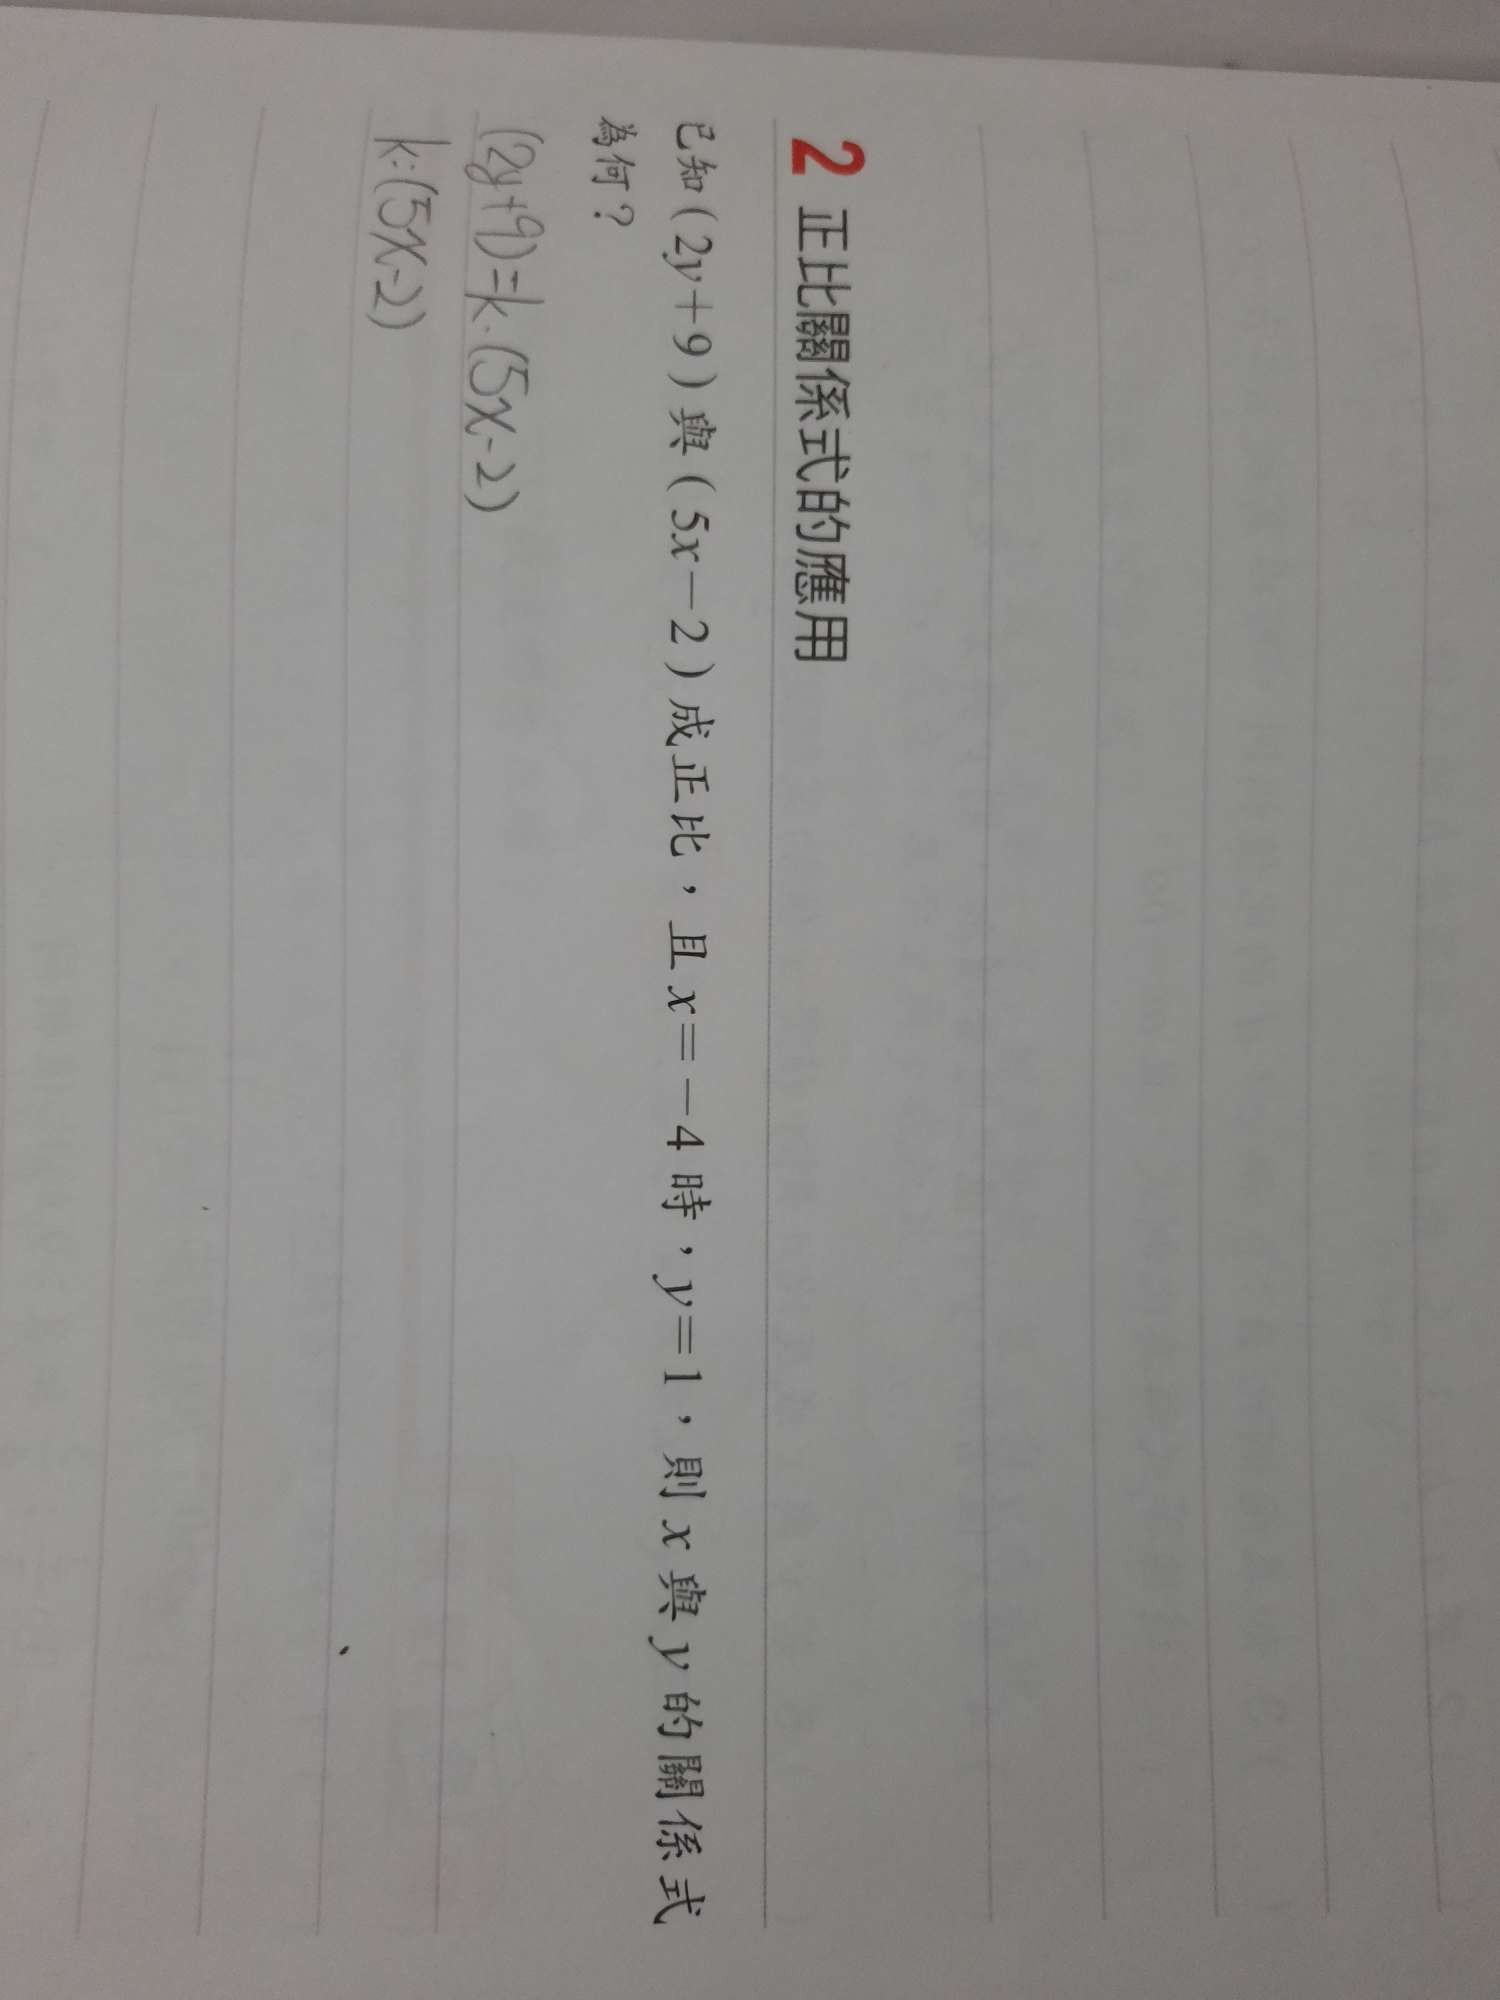 2 正比關係式的應用
已知(2y+9)與(5x-2)成正比,且x=-4時,y=1,則x與y的關係式
為何?
(2y+9)=k·(5x-2)
k=(5x-2)